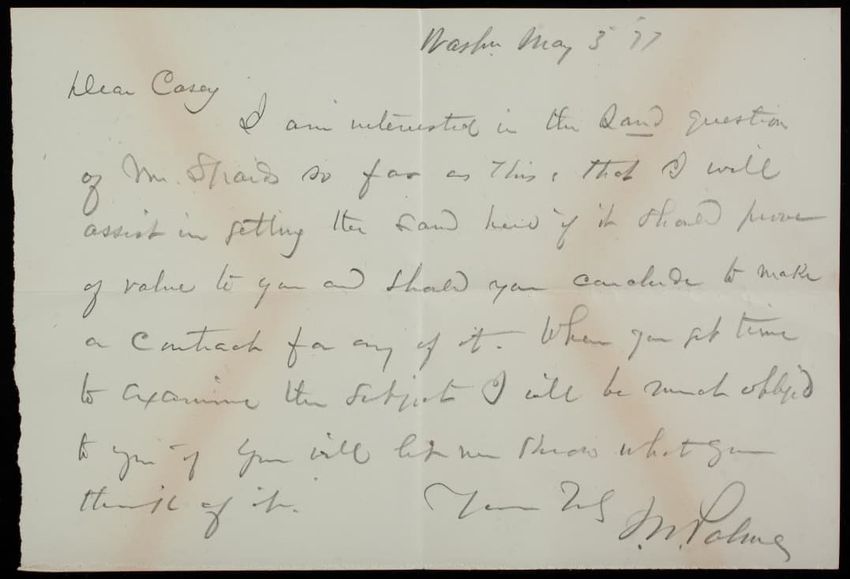 Washn. May 3 '77
Dear Casey
I am interested in the Sand question
of Mr. so far as this, that I will
assist in getting the Sand here if it should prove
of value to you and should you conclude to make
a contract for any of it. When you get time
to examine the subject I will be much oblg'd
to you if you will let me know what you
think of it. Yours Truly
Palmer